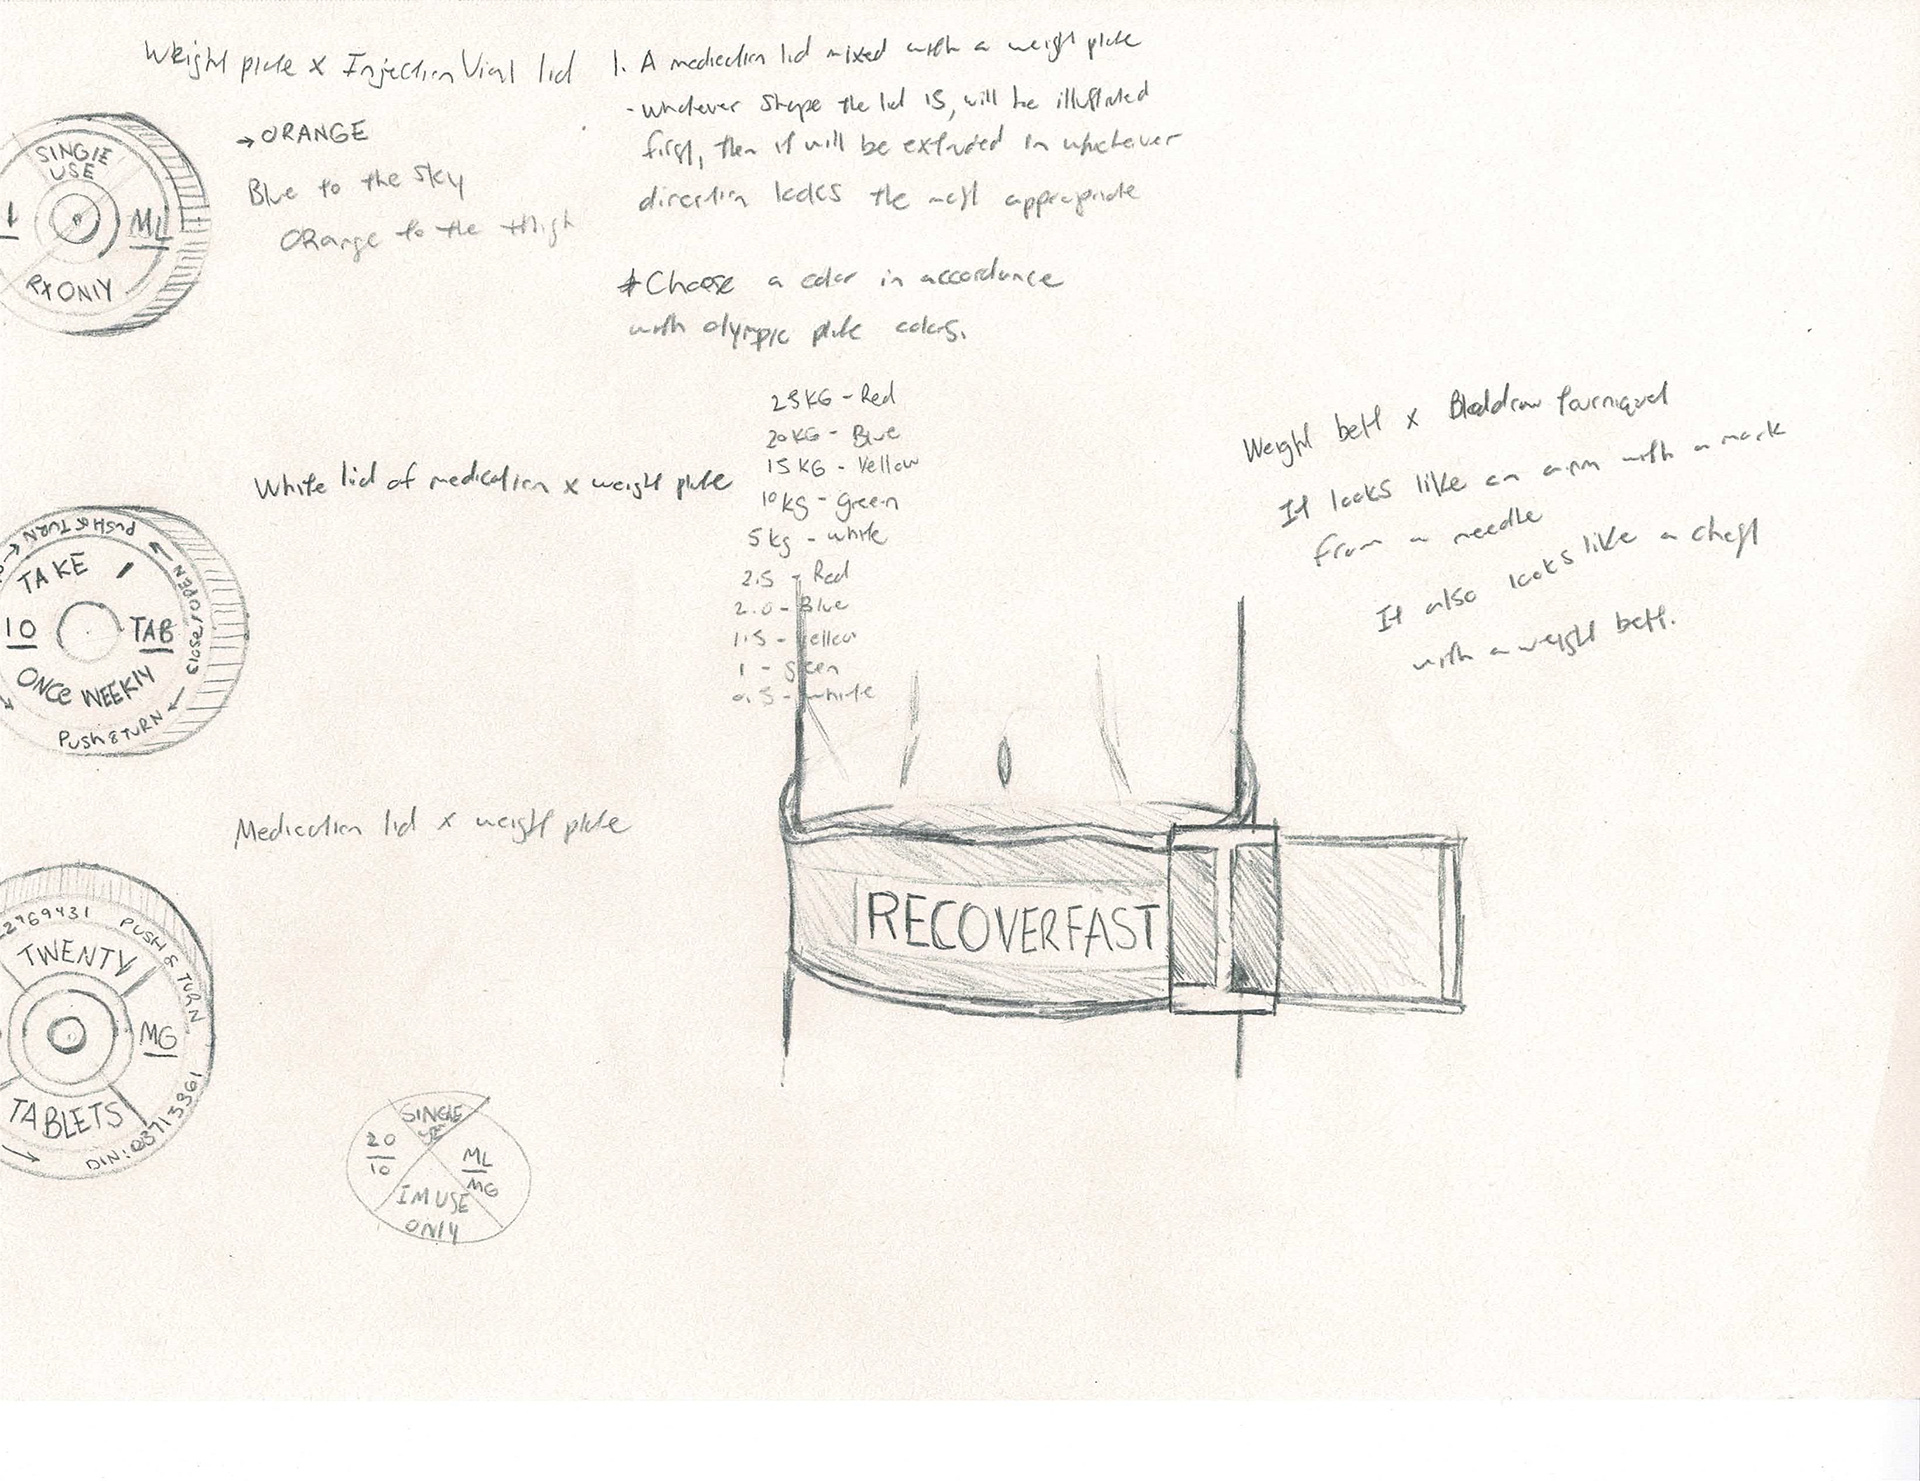 Weight plate x Injection Vial lid
→ ORANGE
Blue to the sky
ORange to the thigh
SINGlE
USE
1
ML
RX ONlY
1. A medication lid mixed with a weight plate
- whatever shape the lid is, will be illustrated
first, then it will be extruded in whichever
direction looks the most appropriate
* Choose a color in accordance
with olympic plate colors.
25KG - Red
20KG - Blue
15KG - Yellow
10kg - Green
5kg - white
2.5 - Red
2.0 - Blue
1.5 - Yellow
1 - green
0.5 - white
White lid of medication x weight plate
PUSH & TURN
TAKE 1
10
TAB
ONCe WEEKlY
OPEN
CLOSE
PUSH & TURN
Weight belt x Blooddraw tourniquet
It looks like an arm with a mark
from a needle
It also looks like a chest
with a weight belt.
Medication lid x weight plate
22969431 PUSH & TURN
TWENTY
MG
TABLETS
DIN: 03713361
RECOVERFAST
SINGLE
USE
20
10
ML
MG
IM USE
ONlY